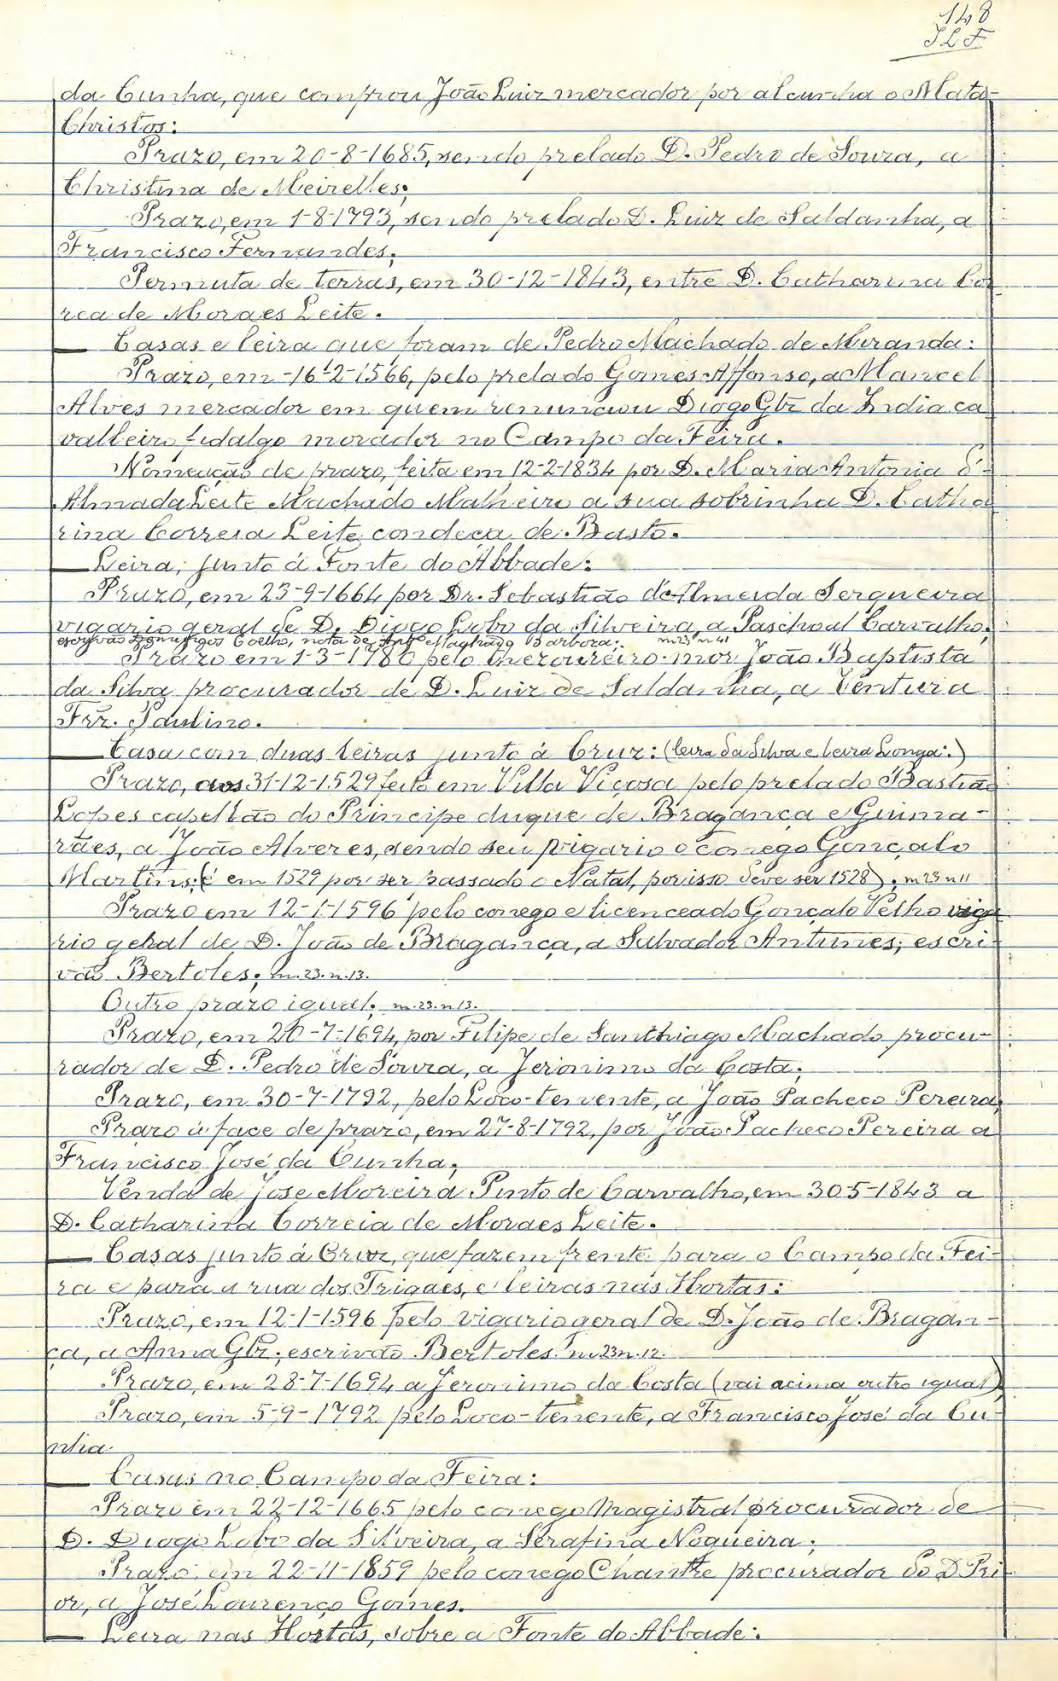 148
JLF
da Cunha, que comprou João Luiz mercador por alcunha o Mata-
Christos:
Prazo, em 20-8-1685, sendo prelado D. Pedro de Souza, a
Christina de Meirelles;
Prazo, em 1-8-1793, sendo prelado D. Luiz de Saldanha, a
Francisco Fernandes;
Permuta de terras, em 30-12-1843, entre D. Catharina Cor
rea de Moraes Leite.
— Casas e leira que foram de Pedro Machado de Miranda:
Prazo, em -16-2-1566, pelo prelado Gomes Affonso, a Manoel
Alves mercador em quem renunciou Diogo Glz da India ca
valleiro fidalgo morador no Campo da Feira.
Nomeação de prazo, feita em 12-2-1834 por D. Maria Antonia d'
Almada Leite Machado Malheiro a sua sobrinha D. Catha
rina Correia Leite condeça de Basto.
— Leira, junto á Fonte do Abbade:
Prazo, em 23-9-1664 por Dr. Sebastião d'Almeida Serqueira
vigario geral de D. Diogo Lobo da Silveira, a Paschoal Carvalho;
escrivão Domingos Coelho, nota de Anto Machado Barboza; m 23 n 41
Prazo em 1-3-1786 pelo thezoureiro-mor João Baptista
da Silva procurador de D. Luiz de Saldanha, a Ventura
Frz. Paulino.
— Casa com duas leiras junto á Cruz: (leira da Silva e leira Longa:)
Prazo, aos 31-12-1529 feito em Villa Viçosa pelo prelado Bastião
Lopes capellão do Principe duque de Bragança e Guima-
rães, a João Alveres, sendo seu vigario o conego Gonçalo
Martins; (é em 1529 por ser passado o Natal, por isso deve ser 1528); m 23 n 11
Prazo em 12-1-1596 pelo conego e licenceado Gonçalo Velho viga
rio geral de D. João de Bragança, a Salvador Antunes; escri-
vão Bertoles; m. 23. n. 13.
Outro prazo igual; m. 23. n. 13.
Prazo, em 20-7-1694, por Filipe de Santhiago Machado procu-
rador de D. Pedro de Souza, a Jeronimo da Costa;
Prazo, em 30-7-1792, pelo Loco-tenente, a João Pacheco Pereira;
Prazo á face de prazo, em 27-8-1792, por João Pacheco Pereira a
Francisco José da Cunha;
Venda de José Moreira Pinto de Carvalho, em 30-5-1843 a
D. Catharina Correia de Moraes Leite.
— Casas junto á Cruz, que fazem frente para o Campo da Fei-
ra e para a rua dos Trigaes, e leiras nas Hortas:
Prazo, em 12-1-1596 pelo vigario geral de D. João de Bragan-
ça, a Anna Glz; escrivão Bertoles. m 23 n. 12.
Prazo, em 28-7-1694 a Jeronimo da Costa (vai acima outro igual)
Prazo, em 5-9-1792 pelo Loco-tenente, a Francisco José da Cu-
nha.
— Casas no Campo da Feira:
Prazo em 22-12-1665 pelo conego Magistral procurador de
D. Diogo Lobo da Silveira, a Serafina Nogueira;
Prazo, em 22-11-1859 pelo conego Chantre procurador do D. Pri
or, a José Lourenço Gomes.
— Leira nas Hortas, sobre a Fonte do Abbade: